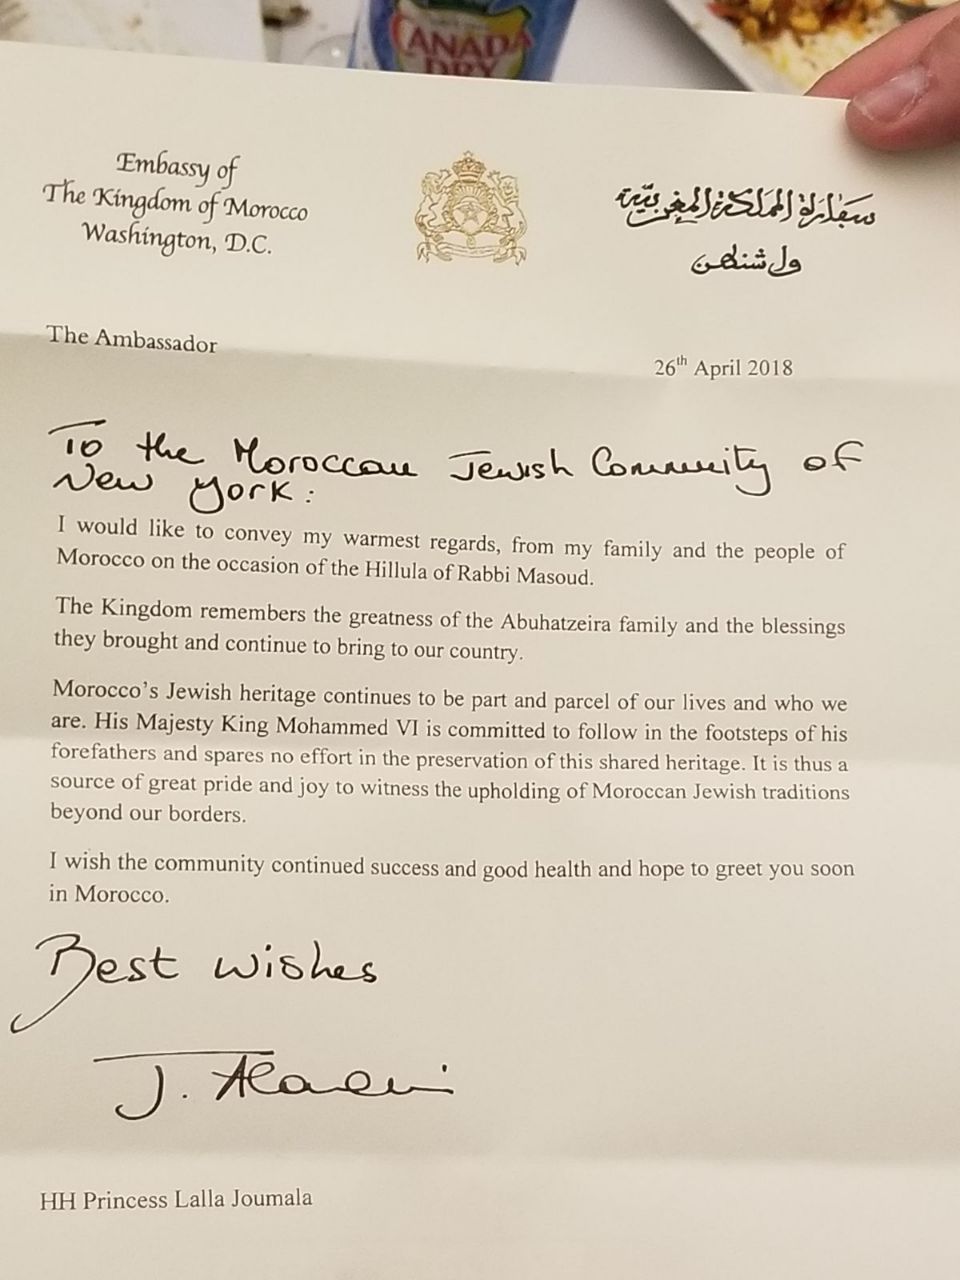 CANADA
DRY
Embassy of
The Kingdom of Morocco
Washington, D.C.
سفارة المملكة المغربية
واشنطن
The Ambassador
26th April 2018
To the Moroccan Jewish Community of
New York:
I would like to convey my warmest regards, from my family and the people of
Morocco on the occasion of the Hillula of Rabbi Masoud.
The Kingdom remembers the greatness of the Abuhatzeira family and the blessings
they brought and continue to bring to our country.
Morocco's Jewish heritage continues to be part and parcel of our lives and who we
are. His Majesty King Mohammed VI is committed to follow in the footsteps of his
forefathers and spares no effort in the preservation of this shared heritage. It is thus a
source of great pride and joy to witness the upholding of Moroccan Jewish traditions
beyond our borders.
I wish the community continued success and good health and hope to greet you soon
in Morocco.
Best wishes
J. Alaoui
HH Princess Lalla Joumala